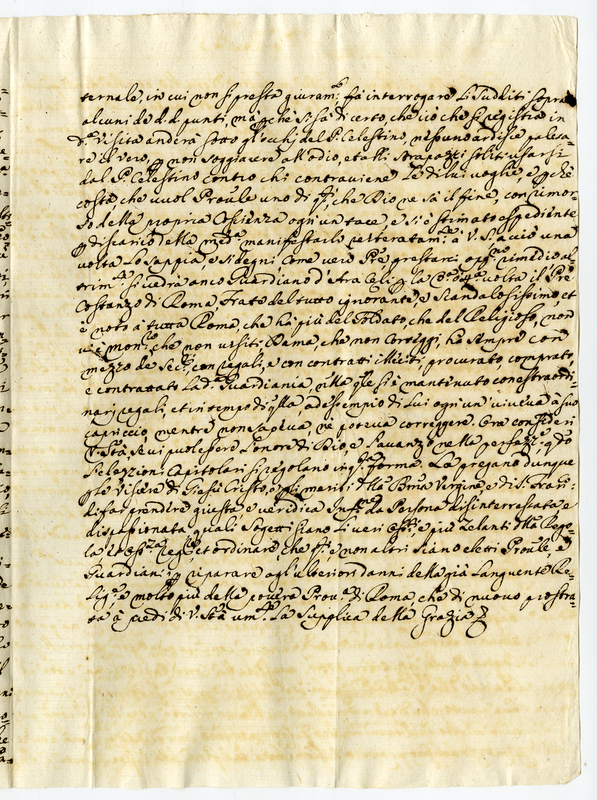 ternale, in cui non si presta giuram.to fà interrogare li Sudditi sopra
alcuni de d.i punti, ma che si sà di certo, che ciò che si registra in
d.a Visita anderà sotto gl'occhi del P. Celestino, nessuno ardisce palesa-
re il vero, p non soggiacere all'odio, et alli strapazzi soliti usarsi
dal P. Celestino contro chi contraviene le di lui voglie, e p che
costà che vuol Prõule uno di q.sti, che Dio ne sà il fine, con rimor-
so della propria Cosienza ogn'un tace, e si è stimato espediente
p discarico della med.ma manifestarlo reiteratam.te à V. S. acciò una
volta lo sappia, e si degni come vero Pre prestarci opp.no rimedio al-
trim.te si vedrà anco Guardiano d'Ara Celi p la volta il Pre
Costanzo di Roma, frate del tutto ignorante, e scandalosissimo, et
è noto à tutta Roma, che hà più del soldato, che del Religioso, non
v'è che non visiti Dama, che non corteggi, hà sempre con
mezzo de Sec.ri, con regali, e con contratti illiciti, procurato, comprato,
e contrattato la d.a Guardiania, nella q.le si è mantenuto con estraordi-
narj regali, et in tempo di q.lla, ad essempio di Lui ogn'un viveva à suo
capriccio, mentre non sapeva, nè poteva correggere. Ora consideri
V. S.tà, se vi può esser l'onore di Dio, e l'avanzo nella perfez.ne, q.do
l'elezzioni Capitolari si regolano in q.sta forma. La pregano dunque
p le viscere di Giesù Cristo, p li meriti della B.ma Vergine, e di S. Fran.co
di far prendere giusta, e veridica Inf.ne da Persona disinteressata, e
dispassionata quali Sogetti siano li veri e più zelanti della Rego-
la et ordinare, che q.sti, e non altri siano eletti Prõuli, e
Guardiani, p riparare agl'ulteriori danni della già languente Re-
lig.ne e molto più della povera Prou.a di Roma, che di nuovo prostra-
ta à piedi di V. S.tà um.te La supplica della Grazia